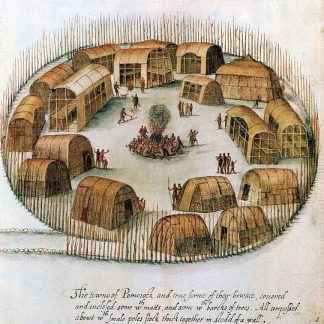 The towne of Pomeiock and true forme of their howses, covered
and enclosed some wth matts, and some wth barcks of trees. All compassed
abowt wth smale poles stock thick together in stedd of a wall.